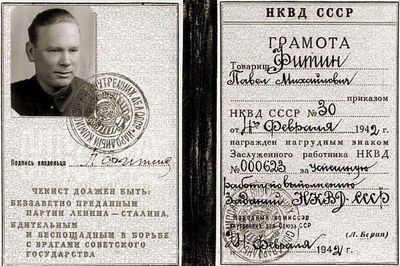 НАРОДНЫЙ КОМИССАРИАТ ВНУТРЕННИХ ДЕЛ СССР
Подпись владельца П. Фитин
ЧЕКИСТ ДОЛЖЕН БЫТЬ:
БЕЗЗАВЕТНО ПРЕДАННЫМ
ПАРТИИ ЛЕНИНА—СТАЛИНА,
БДИТЕЛЬНЫМ
И БЕСПОЩАДНЫМ В БОРЬБЕ
С ВРАГАМИ СОВЕТСКОГО
ГОСУДАРСТВА
НКВД СССР
ГРАМОТА
Товарищ Фитин
Павел Михайлович
приказом
НКВД СССР № 30
от 4го Февраля 1942 г.
награжден нагрудным знаком
Заслуженного работника НКВД
№ 000623 за успешную
работу по выполнению
заданий НКВД СССР
Народный комиссар
внутренних дел Союза ССР
(Л. Берия)
Февраля 1942 г.